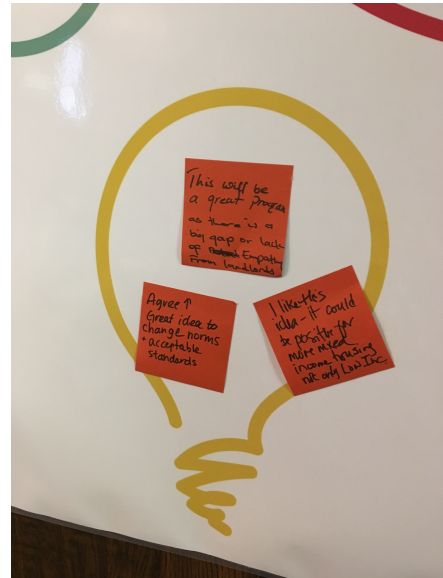 This will be
a great program
as there is a
big gap or lack
of Empathy
from landlords
Agree ↑
Great idea to
change norms
+ acceptable
standards
I like this
idea - it could
be positive for
more mixed
income housing
not only Low Inc.